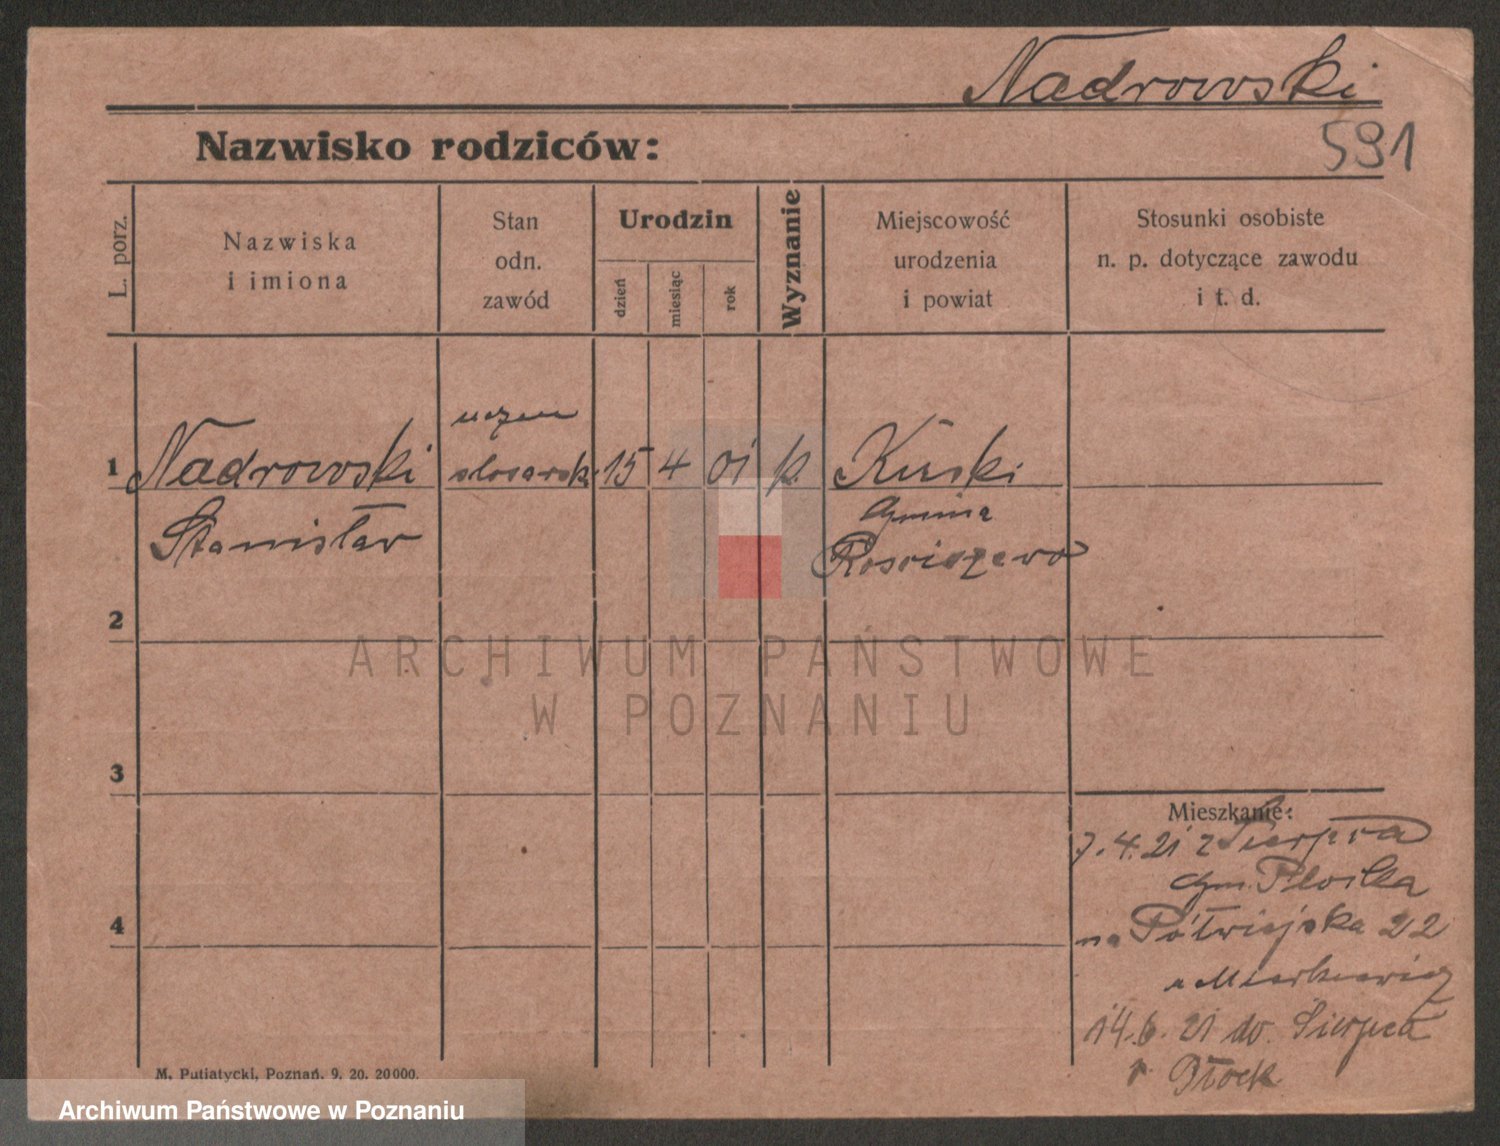 Nadrowski
591
Nazwisko rodziców:
L. porz.
Nazwiska
i imiona
Stan
odn.
zawód
Urodzin
dzień
miesiąc
rok
Wyznanie
Miejscowość
urodzenia
i powiat
Stosunki osobiste
n. p. dotyczące zawodu
i t. d.
uczeń
1 Nadrowski slosarsk. 15 4 01 k. Kuski
Stanisław
Gmina
Rosciszewo
2
3
4
Mieszkanie:
7.4.21 z Sierpca
Gm. Płocka
na Półwiejska 22
u
14.6.21 do Sierpca
p. Płock
M. Putiatycki, Poznań. 9. 20. 20000.
ARCHIWUM PAŃSTWOWE
W POZNANIU
Archiwum Państwowe w Poznaniu